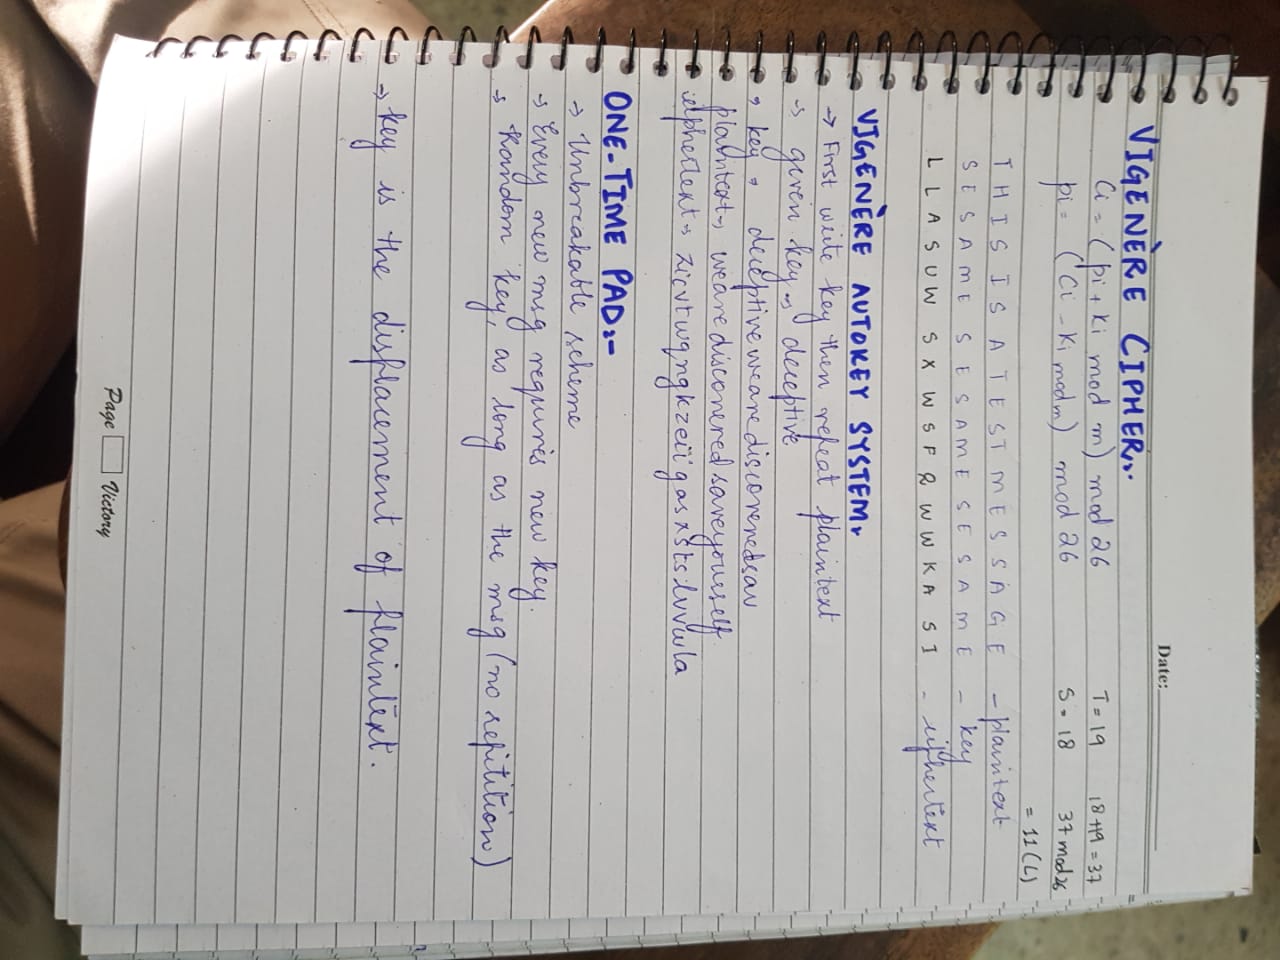 Date:
VIGENÈRE CIPHER:-
Ci = (pi + Ki mod m) mod 26 T = 19 18+19 = 37
pi = (Ci - Ki mod m) mod 26 S = 18 37 mod 26
= 11 (L)
T H I S I S A T E S T M E S S A G E - plaintext
S E S A M E S E S A M E S E S A M E - key
L L A S U W S X W S F Q W W K A S I - ciphertext
VIGENÈRE AUTOKEY SYSTEM:
→ First write key then repeat plaintext
→ given key → deceptive
→ key → deceptivewearediscoveredsav
plaintext → wearediscoveredsaveyourself
ciphertext → zicvtwqngkzeiigasxstslvvwla
ONE-TIME PAD:-
→ Unbreakable scheme
→ Every new msg requires new key.
→ Random key, as long as the msg (no repitition)
→ key is the displacement of plaintext.
Page Victory